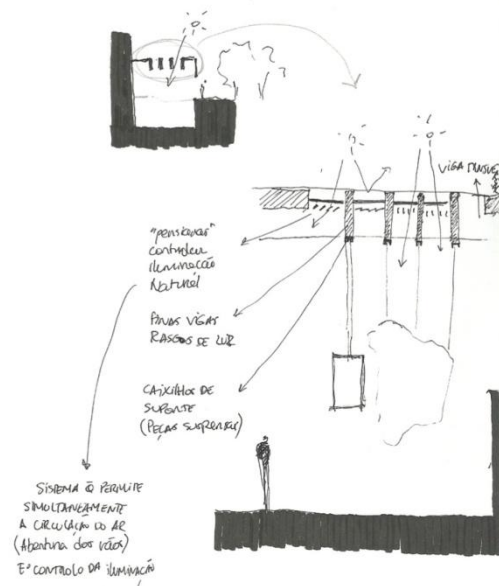 "persianas"
controlam
iluminação
Natural
FINAS VIGAS
RASGOS DE LUZ
CAIXILHOS DE
SUPORTE
(PEÇAS SUSPENSAS)
SISTEMA Q PERMITE
SIMULTANEAMENTE
A CIRCULAÇÃO DO AR
(Abertura dos vãos)
E O CONTROLO DA ILUMINAÇÃO
VIGA